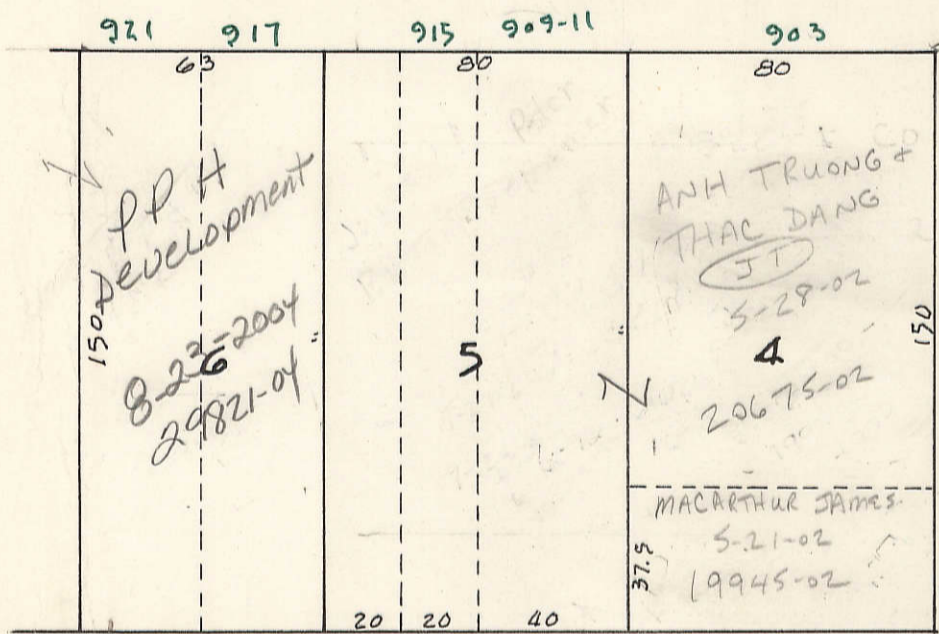 921 917 915 909-11 903
63 80 80
PPH
Development
150
8-23-2004
6
29821-04
"
5
"
ANH TRUONG &
THAC DANG
JT
5-28-02
150
4
20675-02
MACARTHUR JAMES
5-21-02
37.5
19945-02
20 20 40